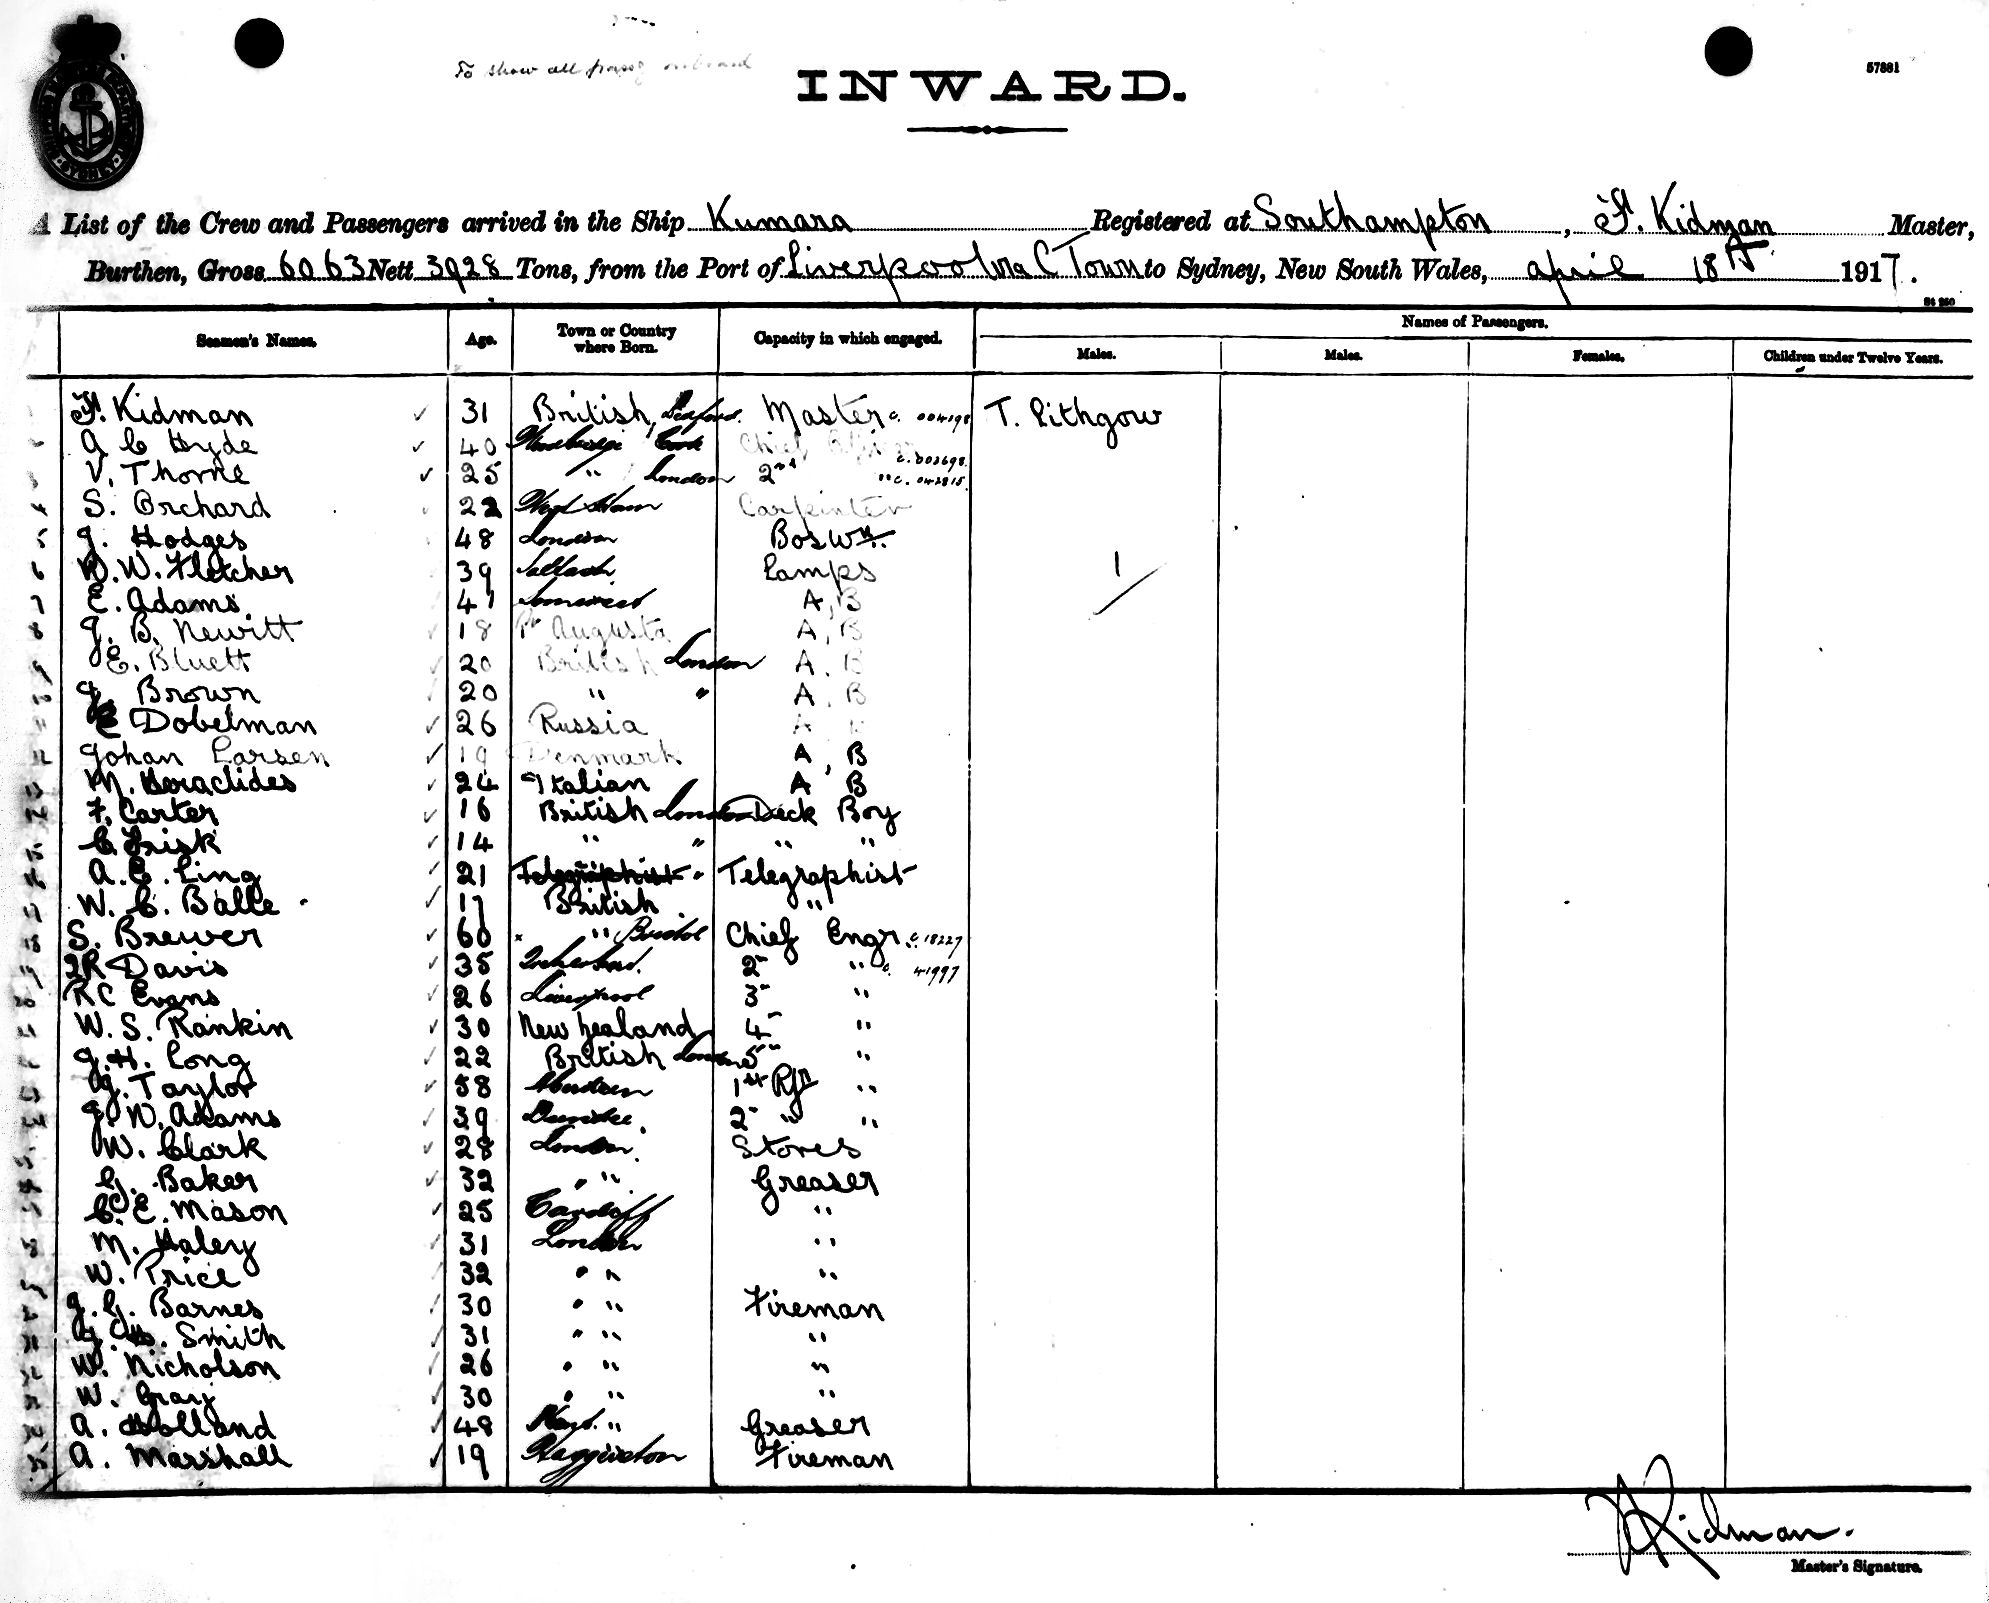 To show all passg onboard
INWARD.
57881
SYDNEY
A List of the Crew and Passengers arrived in the Ship Kumara Registered at Southampton, F. Kidman Master,
Burthen, Gross 6063 Nett 3928 Tons, from the Port of Liverpool via C Town to Sydney, New South Wales, April 18th 1917.
St 250
Seamen's Names. Age. Town or Country where Born. Capacity in which engaged. Names of Passengers.
Males. Males. Females. Children under Twelve Years.
F. Kidman 31 British, Bedford. Master c. 004198 T. Lithgow
A C Hyde 40 Cork Chief Officer c. 002698.
V. Thorne 25 " London 2nd " c. 042815.
S. Orchard 22 West Ham Carpenter
J. Hodges 48 London Boswn.
W. Fletcher 39 Saltash Lamps 1
E. Adams. 41 Somerset A, B
J. B. Newitt 18 Pt Augusta A, B
E. Bluett 20 British London A. B
J. Brown 20 " " A. B
C Dobelman 26 Russia A B
Johan Larsen 19 Denmark A, B
M. Heraclides 24 Italian A B
F. Carter 16 British London Deck Boy
C. Frisk 14 " " " "
A. C. Ling 21 Telegraphist " Telegraphist
W. C. Balle 17 British "
S. Brewer 60 " Bristol Chief Engr c. 18227
Davis 35 Birkenhead. 2" " c. 41997
R C Evans 26 Liverpool 3" "
W. S. Rankin 30 New Zealand 4" "
J. H. Long 22 British London 5" "
J. Taylor 58 Aberdeen 1st Rfr "
J. W. Adams 39 Dundee. 2" " "
W. Clark 28 London. Stores
G. Baker 32 " " Greaser
C. E. Mason 25 Cardiff "
M. Haley 31 London "
W. Price 32 " " "
J. G. Barnes 30 " " Fireman
Smith 31 " " "
W. Nicholson 26 " " "
W. Gray 30 " " "
A. Holland 48 " Greaser
A. Marshall 19 Haggerston Fireman
Kidman.
Master's Signature.